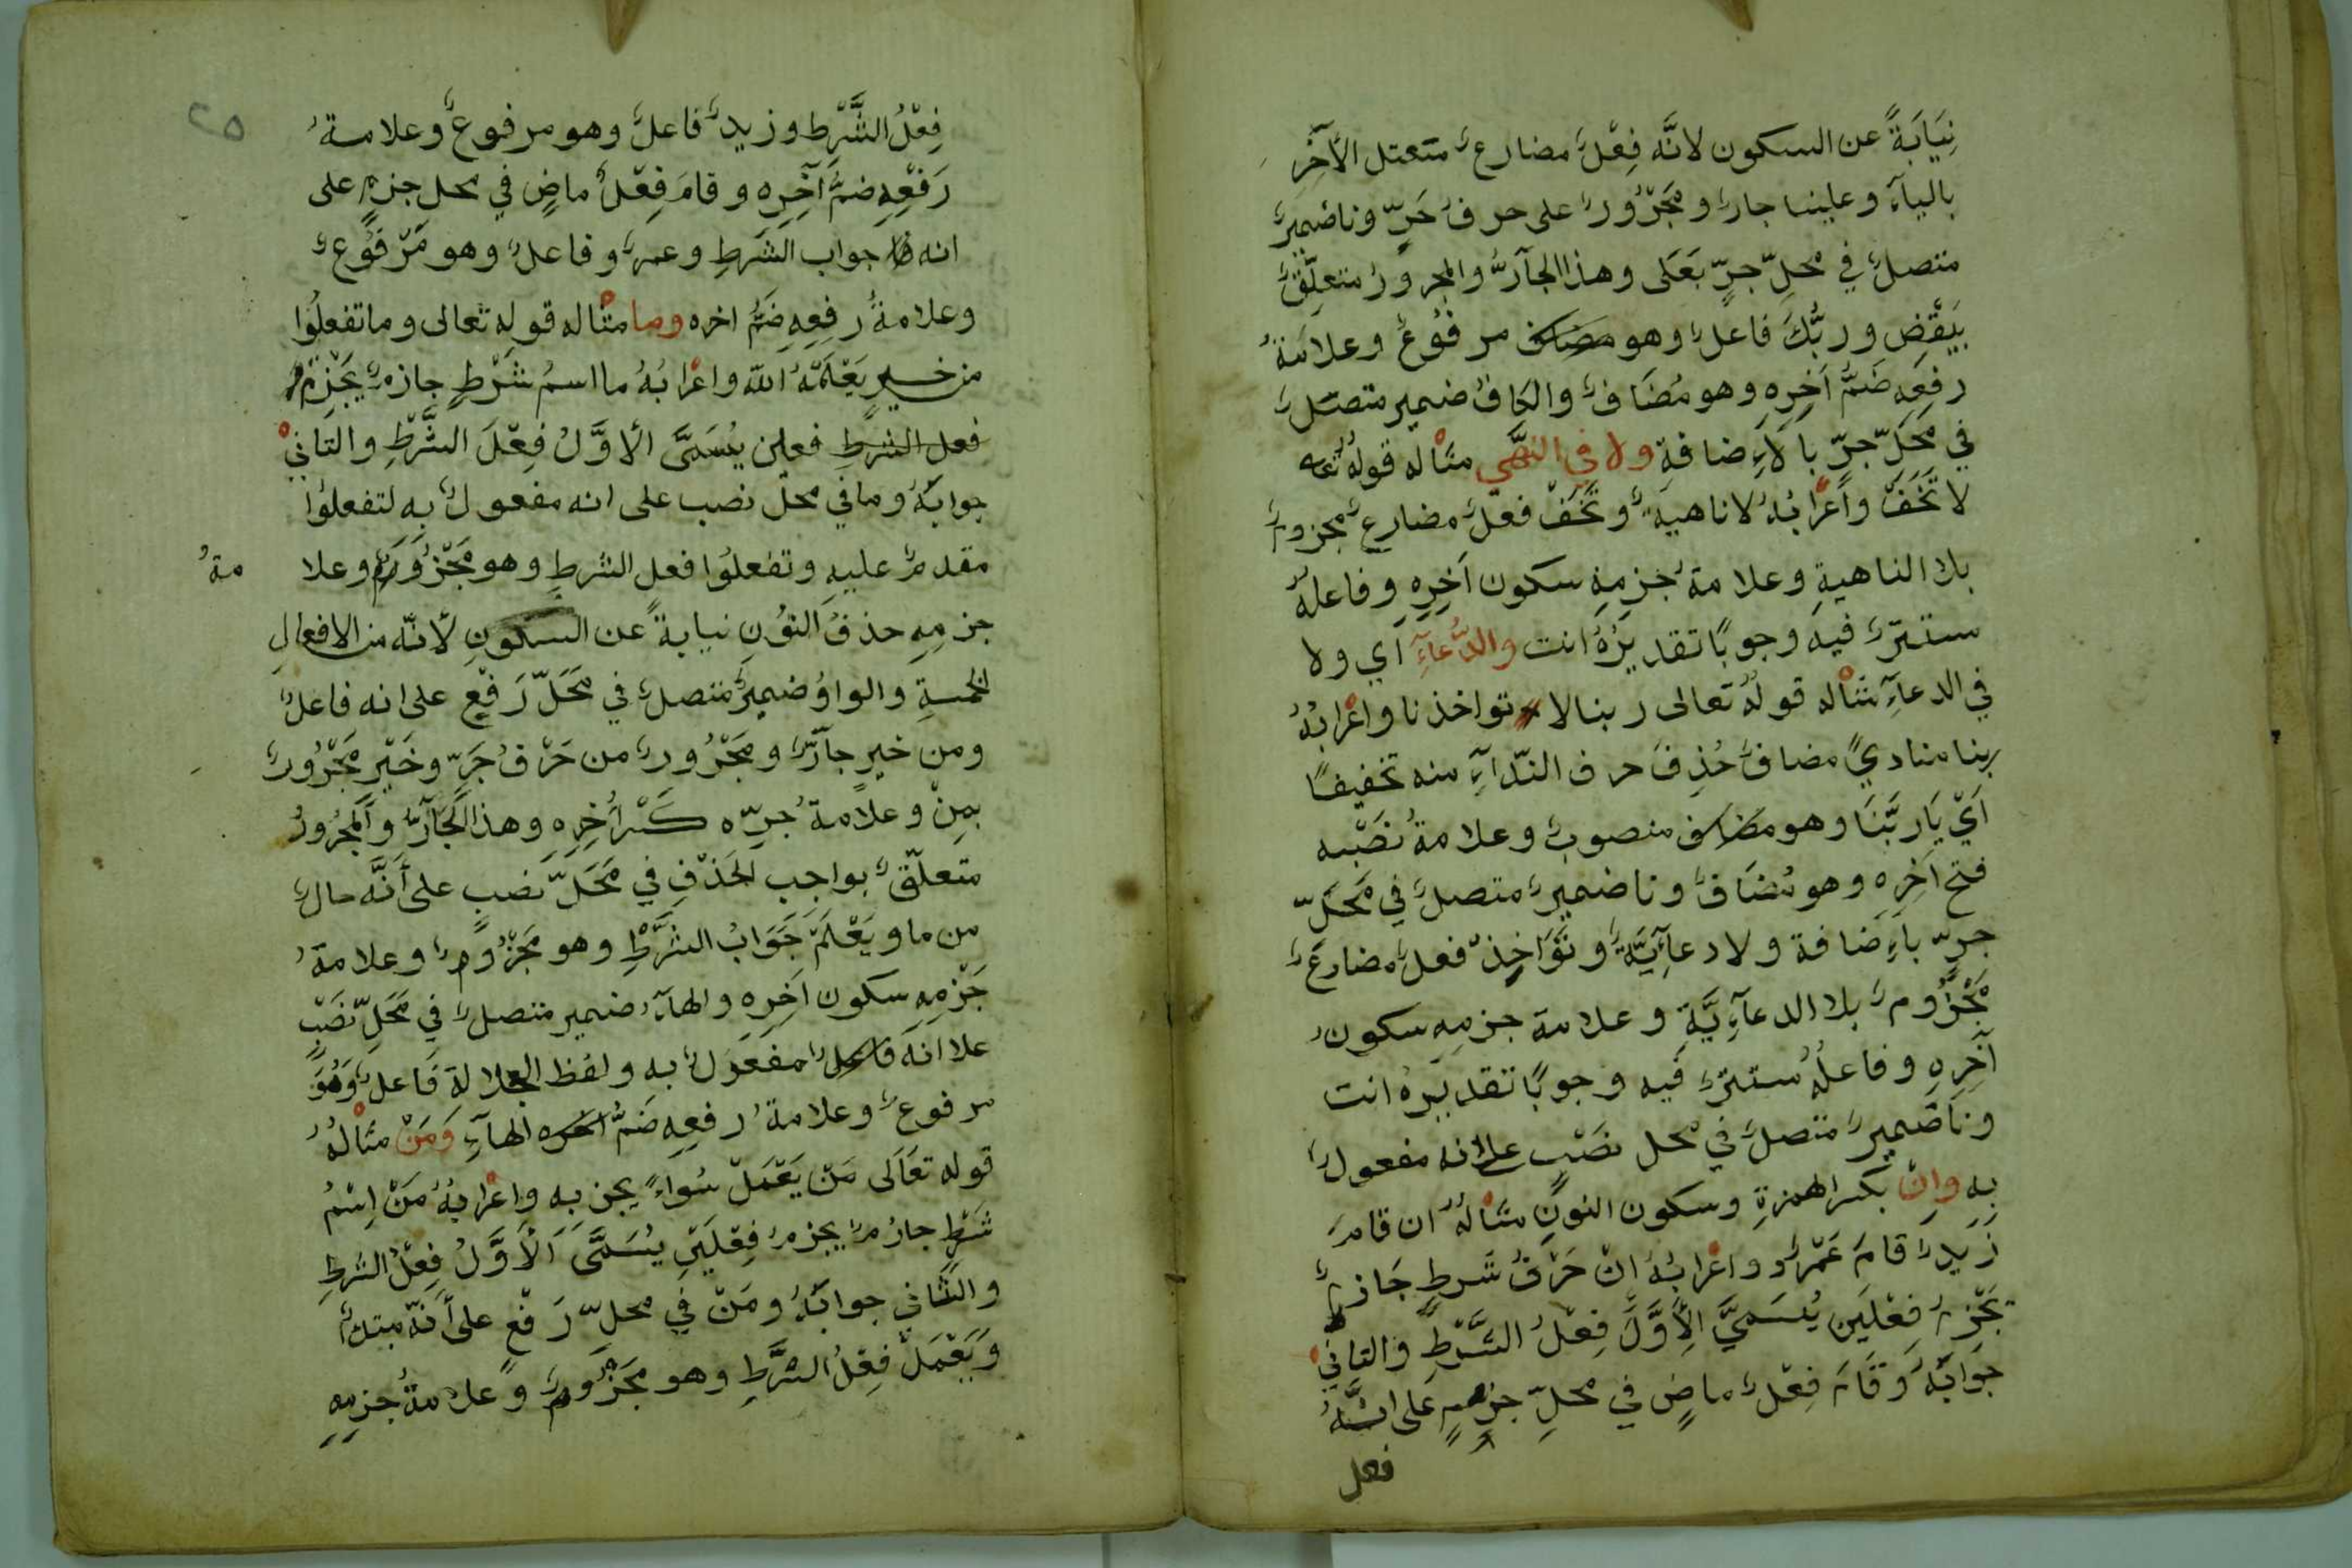 نِيَابَةً عن السكون لانَّه فِعْلٌ مضارعٌ متعتل الآخِرِ
بالياءِ وعلينا جارٌ ومَجْرُورٌ على حرفُ جَرٍّ وناضميرٌ
متصلٌ في محلِّ جرٍّ بَعَلى وهذا الجآرُّ والمجرورُ متعلِّقٌ
بيَقْضِ وربُّكَ فاعلٌ وهو مضاف مرفُوعٌ وعلامَةُ
رفعِه ضَمُّ آخِرِهِ وهو مُضَافٌ والكافُ ضمير متصلٌ
في مَحَلِّ جرّ بالاءِضافةِ ولا في النَّهْي مثاله قولُه تعه
لا تَخَفْ واَعْرابُهُ لا ناهيةٌ وتَخَفْ فعلٌ مضارعٌ مجزومٌ
بلا الناهيةِ وعلامةُ جزمِهِ سكون اَخِرِهِ وفاعلهُ
ستترٌ فيه وجوبًا تقديرُهُ انت والدُّعآءِ اَي ولا
في الدعآءِ مثاله قولُهُ تعالى ربنا لا تواخذنا واعْرابُهُ
ربنا مناديً مضافٌ حُذِفَ حرف النّدآءِ منه تخفيفًا
اَيْ يَارَبَّنَا وهو مضاف منصوبٌ وعلامةُ نَصْبه
فتح اَخِرِه وهو مُضَافٌ ونا ضميرٌ متصلٌ في مَحَلِّ
جرّ باءِضَافة ولا دعآئِيَّةٌ وتُؤَاخِذْ فعلٌ مضارعٌ
مَجْزُومٌ بلا الدعآءِيَّةِ وعلامة جزمِهِ سكونُ
آخِرِهِ وفاعلُهُ ستترٌ فيه وجوبًا تقديرهُ انت
ونا ضميرٌ متصلٌ في محل نصْب علاانه مفعولٌ
بِه واِنْ بكسرا لهمزةِ وسكون النونِ مثالُهُ ان قامَ
زَيدٌ قامَ عَمْرٌو واعْرابُهُ اِنْ حَرْفُ شَرطٍ جَازمٌ
يَجْزِمُ فِعْلَين يُسَمَيَّ الأَوَّلَ فِعْلُ الشَّرْطِ والثاني
جَوَابَهُ وَقَامَ فِعْلٌ ماضٍ في محلِّ جزمٍ على انَّهُ
فعل
٢٥
فِعْلُ الشَّرْطِ وزيدٌ فاعلٌ وهو مرفوعٌ وعلامةُ
رَفْعِهِ ضمُّ آخِرِه وقامَ فِعْلٌ ماضٍ في محل جزمٍ على
انه جواب الشَرطِ وعمرٌو فاعلٌ وهو مَرْفُوعٌ
وعلامةُ رفِعِهِ ضَمُّ اخره وما مثاله قوله تعالى وما تفعلُوا
من خيرٍ يَعْلَمْهُ اللّه واعْرابُهُ ما اسمُ شَرْطٍ جازمٌ يَجْزِمُ
فعل الشرطِ فعلين يُسَمَّى الأوَّلُ فِعْلَ الشَّرْطِ والثاني
جوابَهُ وما في محلّ نصب على انه مفعولٌ به لتفعلُوا
مقدمٌ عليهِ وتفعلُوا فعل الشرطِ وهو مَجْزُومٌ وعلا مةُ
جزمِهِ حذفُ النُونِ نيابةً عن السكونِ لأنّه من الافعالِ
الخمسةِ والواوُ ضميرٌ متصلٌ في مَحَلّ رَفْعٍ على انه فاعلٌ
ومن خيرٍ جآرٌّ ومَجْرُورٌ من حَرْفُ جَرٍّ وخَيْرٍ مَجْرُورٌ
بمِنْ وعلامةُ جرِّه كَسْرُ أَخِرِهِ وهذا الجَآرُّ والمجرُورُ
متعلّقٌ بواجِب الحَذْفِ في مَحَلّ نصبٍ على أَنَّه حالٌ
من ما ويَعْلَمْ جَوَابُ الشَّرْطِ وهو مَجْزُومٌ وعلامةُ
جَزْمِهِ سكون اَخِرِهِ والهآءُ ضمير متصلٌ في مَحَلِّ نَصْبٍ
علا انه فاعلٌ مفعَولٌ به ولفظ الجلالة فَاعلٌ وَهُوَ
مرفوعٌ وعلامةُ رفعِهِ ضَمُّ اخره الهآءِ وَمَنْ مثالُهُ
قوله تعَالَى مَنْ يَعْمَلْ سُواءً يجز به واِعْرابُهُ مَنْ اِسْمُ
شَرْطٍ جازمٌ يجزمُ فِعْلَيْنِ يُسَمَّى الْأَوَّلُ فِعْلُ الشرطِ
والثَّاني جوابَهُ ومَنْ في محلِّ رَفْعٍ على أَنَّهُ مبتدأٌ
وَيَعْمَلْ فِعْلُ الشَّرْطِ وهو مَجْزُومٌ وعلامةُ جزمِهِ